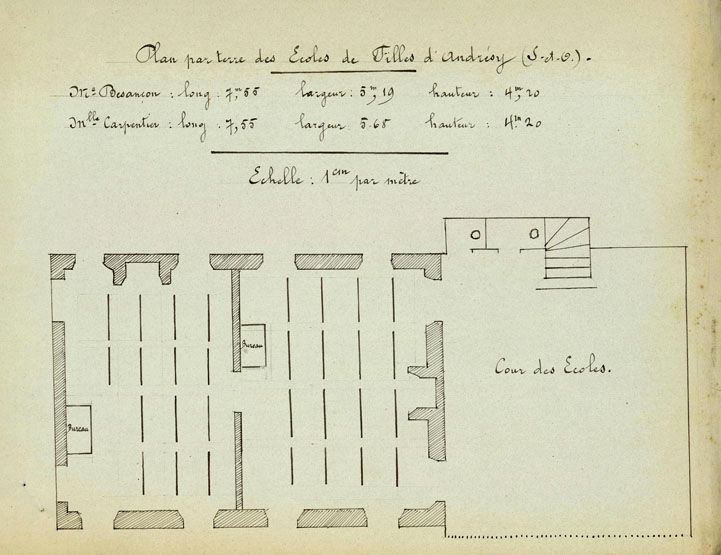 Plan par terre des Ecoles de Filles d'Andrésy (S-&-O.).
Me Besançon : long : 7,m55 largeur : 5m,19 hauteur : 4,m20
Mlle Carpentier : long : 7,55 largeur : 5.65 hauteur : 4m20
Echelle : 1cm par mètre
Bureau
Cour des Ecoles.
Bureau